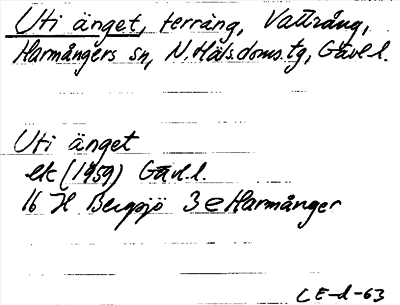 Uti änget, terräng, Vattrång,
Harmångers sn, N. Häls. doms. tg, Gävl. l.
Uti änget
ek (1959) Gävl. l.
16 H Bergsjö 3 e Harmånger
CE-d-63